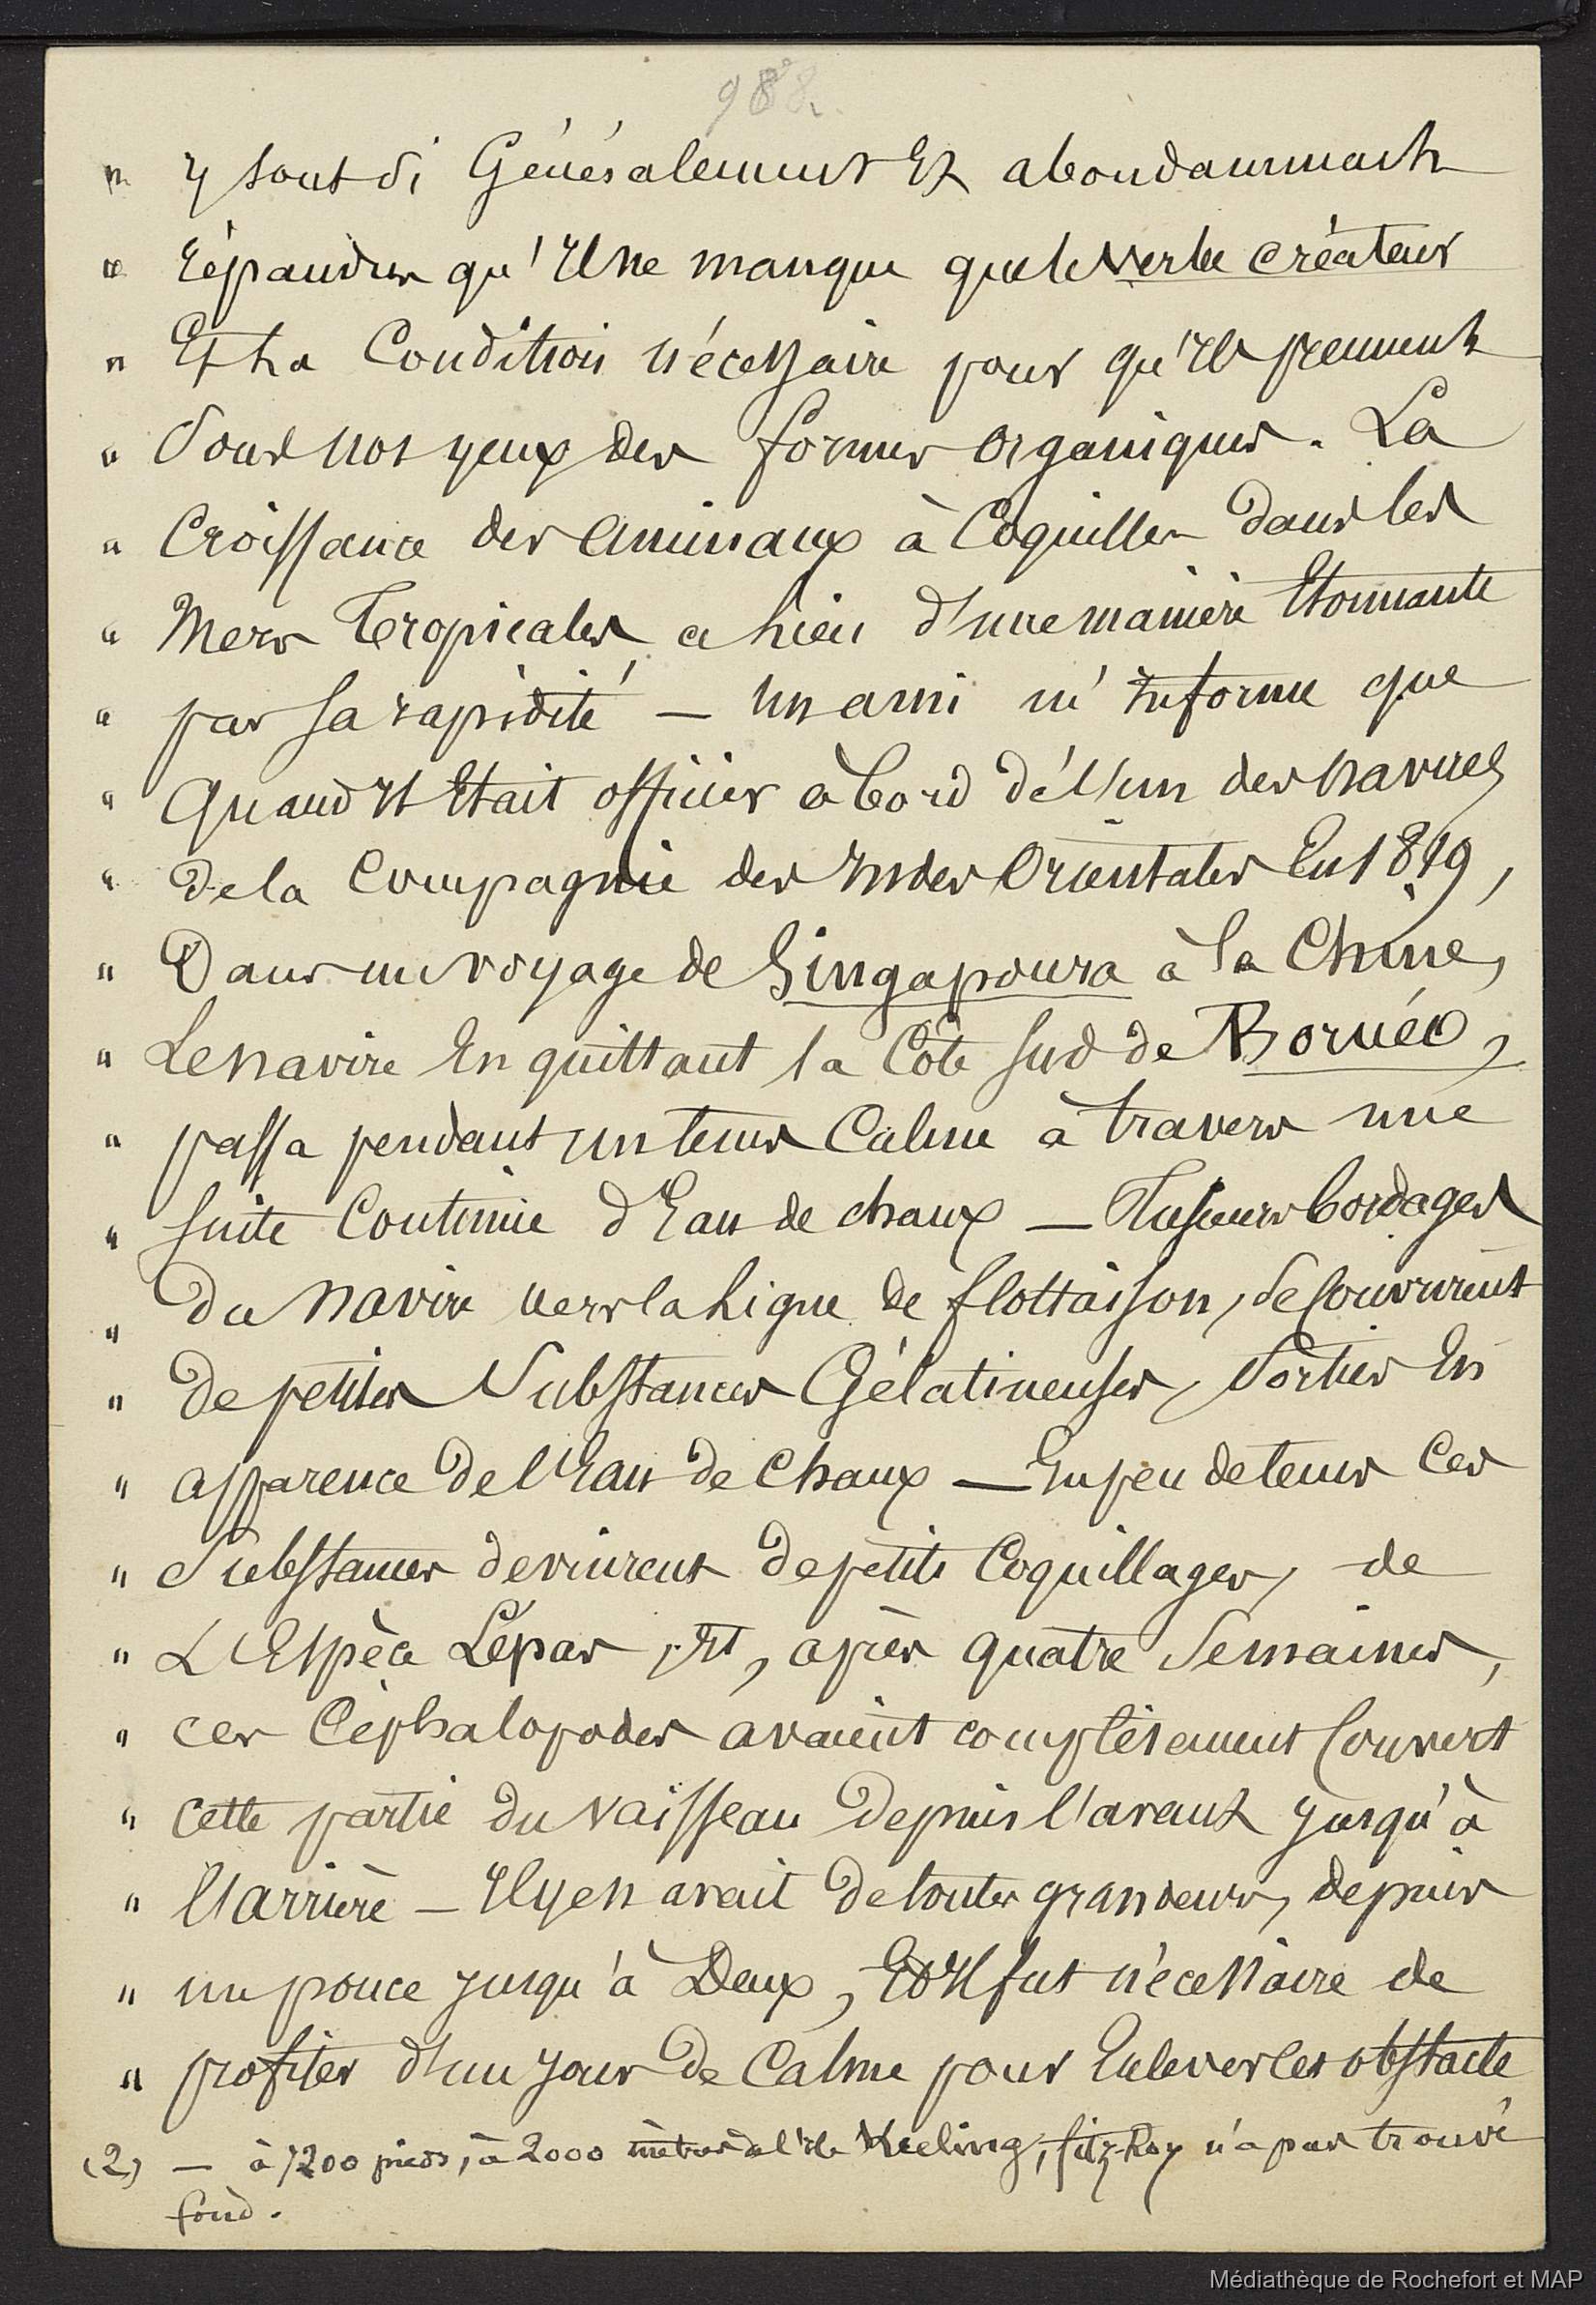 988.
" y sont si Généralement Et abondamment
" répandus qu'Il ne manque que le verbe créateur
" Et la Condition nécessaire pour qu'Ils prennent
" Sous nos yeux des formes organiques. La
" Croissance des animaux à Coquilles dans les
" Mers Tropicales a lieu d'une manière Etonnante
" par sa rapidité — un ami m'Informe que
" Quand Il Etait officier à bord de l'un des navires
" de la Compagnie des Indes Orientales En 1819,
" Dans un voyage de Singapoura à la Chine,
" Le navire En quittant la Côte sud de Bornéo,
" passa pendant un tems Calme à travers une
" suite Continue d'Eau de chaux — Plusieurs bordages
" du navire vers la Ligne de flottaison, se Couvrirent
" de petites Substances Gélatineuses, Sorties En
" apparence de l'Eau de Chaux — En peu de tems Ces
" Substances devinrent de petits Coquillages, de
" L'Espèce Lépas, Et, après quatre Semaines,
" ces Céphalopodes avaient complètement Couvert
" cette partie du vaisseau depuis l'avant jusqu'à
" l'arrière — Il y en avait de toutes grandeurs, depuis
" un pouce jusqu'à Deux, Et Il fut nécessaire de
" profiter d'un jour de Calme pour Enlever les obstacle
(2) — à 7200 pieds, à 2000 mètres de l'Ile Keeling, fitz-Roy n'a pas trouvé
fond.
Médiathèque de Rochefort et MAP